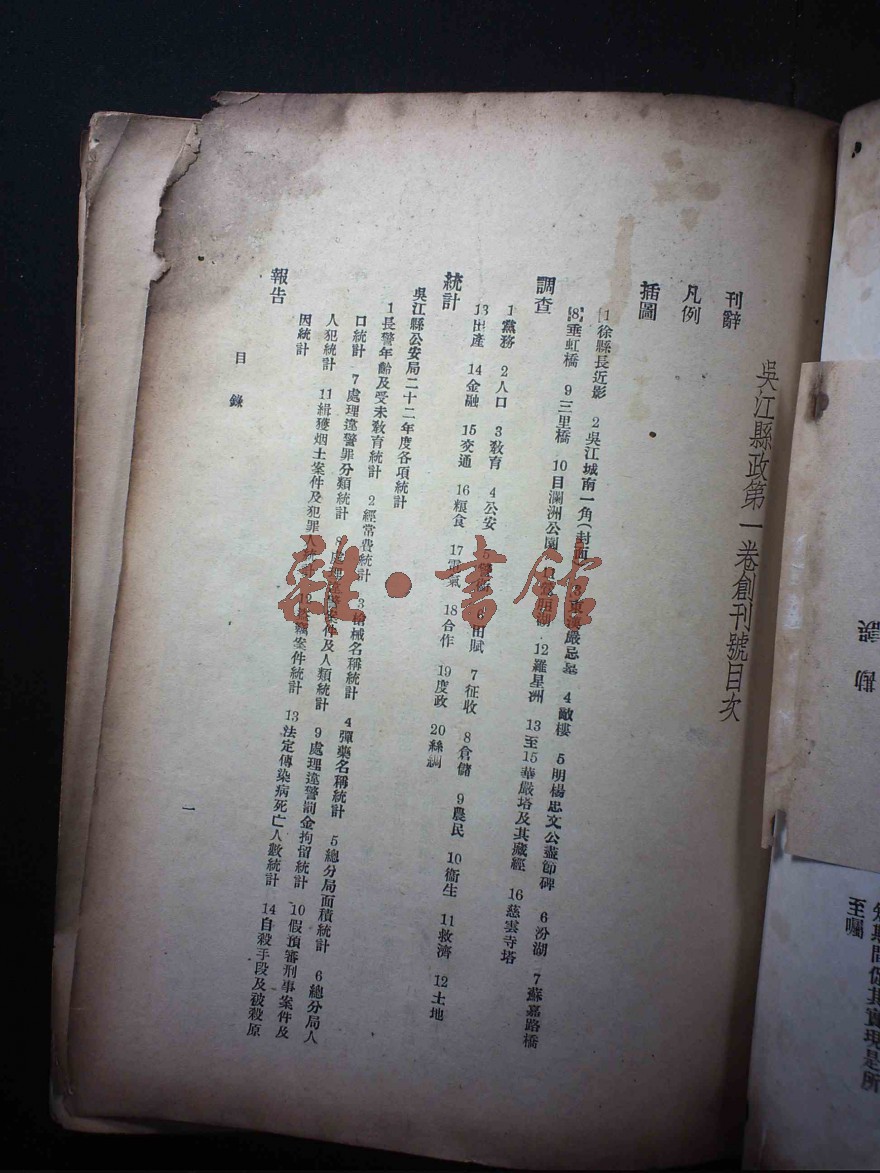 吳江縣政第一卷創刊號目次
刊辭
凡例
插圖
1徐縣長近影 2吳江城南一角(封面) 4敵樓 5明楊忠文公藎節碑 6汾湖 7蘇嘉路橋
8垂虹橋 9三里橋 10目瀾洲公園 12羅星洲 13至15華嚴塔及其藏經 16慈雲寺塔
調查
1黨務 2人口 3教育 4公安 6田賦 7征收 8倉儲 9農民 10衞生 11救濟 12土地
13出產 14金融 15交通 16糧食 17電氣 18合作 19度政 20絲綢
統計
吳江縣公安局二十二年度各項統計
1長警年齡及受未教育統計 2經常費統計 3槍械名稱統計 4彈藥名稱統計 5總分局面積統計 6總分局人
口統計 7處理違警罪分類統計 8處理違警案件及人類統計 9處理違警罰金拘留統計 10假預審刑事案件及
人犯統計 11緝獲烟土案件及犯罪人統計 竊案件統計 13法定傳染病死亡人數統計 14自殺手段及被殺原
因統計
報告
目錄
一
雜·書館
勘誤
至囑